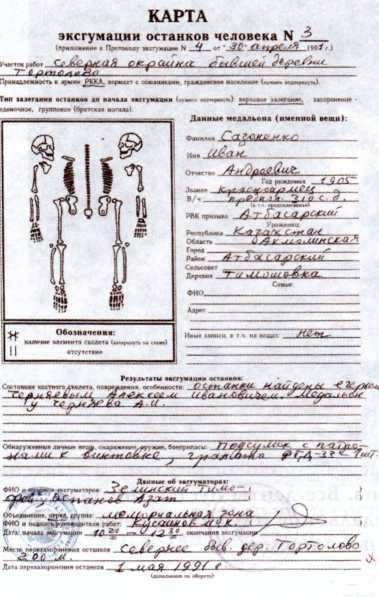 КАРТА
эксгумации останков человека N 3
(приложение к Протоколу эксгумации N 4 от "30" апреля 1991 г.)
Участок работ северная окраина бывшей деревни
Тортолово
Принадлежность к армии РККА, вермахт с союзниками, гражданское население (нужное подчеркнуть).
Тип залегания останков до начала эксгумации (нужное подчеркнуть): верховое залегание, захоронение -
одиночное, групповое (братская могила).
Данные медальона (именной вещи):
Фамилия Сазоненко
Имя Иван
Отчество Андреевич
Год рождения 1905
Звание Красноармеец
В/ч 310 с.д.
РВК призыва Атбасарский
Уроженец
Республика Казахстан
Область Акмолинская
Город
Район Атбасарский
Сельсовет
Деревня Тимошовка
Семья:
ФИО
Адрес
Иные записи, в т.ч. на вещах: нет
Обозначения:
наличие элемента скелета (заштриховать на схеме)
отсутствие
Результаты эксгумации останков:
Состояние костного скелета, повреждения, особенности: останки найдены
Черняевым Алексеем Ивановичем. Медальон
у Черняева А.И.
Обнаруженные личные вещи, снаряжение, оружие, боеприпасы: Подсумок с патро-
нами к винтовке, граната РГД-33
Данные об эксгуматорах:
ФИО и эксгуматоров
Объединение, отряд, группа: мемориальная зона
ФИО и подпись руководителя работ:
Дата, начала эксгумации 10 - 12 окончания эксгумации
Место перезахоронения останков севернее быв. дер. Тортолово
200 м.
Дата перезахоронения останков 1 мая 1991 г
(дополнения на обороте)